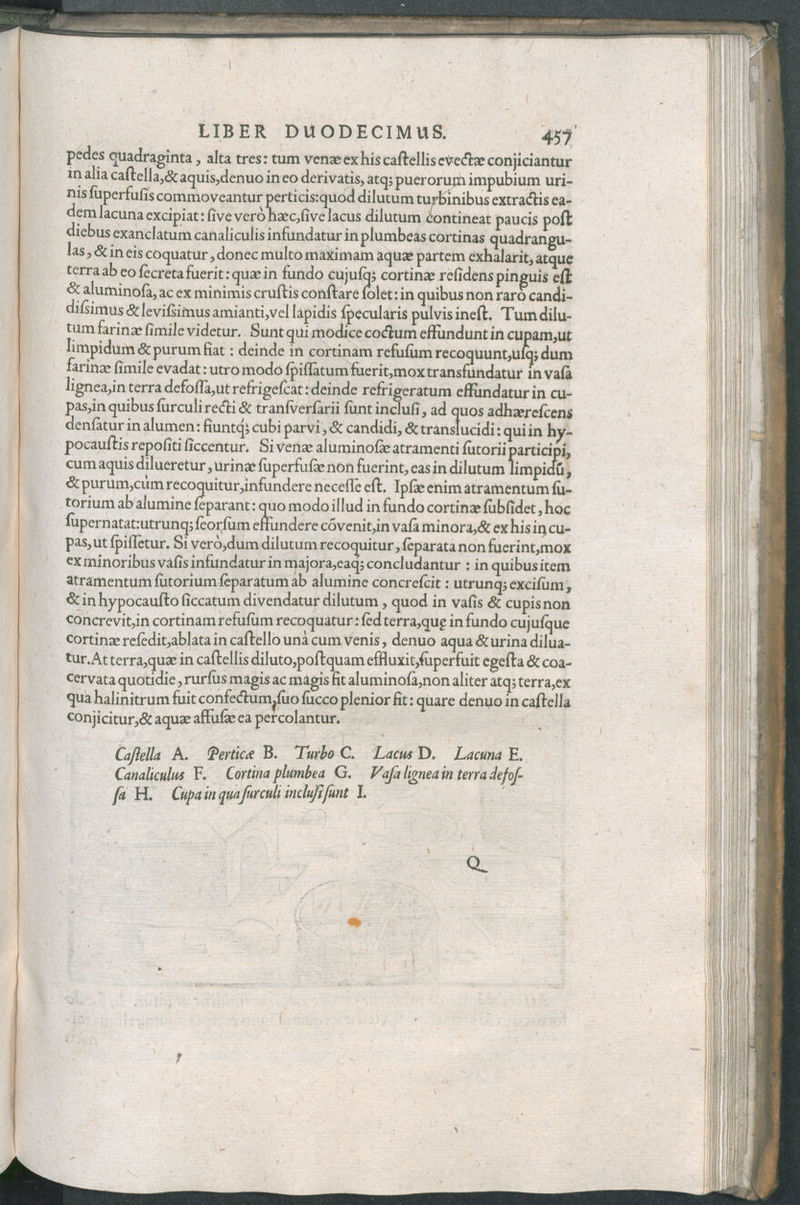 LIBER DUODECIMUS. 457
pedes quadraginta, alta tres: tum venæ ex his caſtellis evectæ conjiciantur
in alia caſtella, & aquis, denuo in eo derivatis, atq; puerorum impubium uri-
nis ſuperfuſis commoveantur perticis: quod dilutum turbinibus extractis ea-
dem lacuna excipiat: ſive verò hæc, ſive lacus dilutum contineat paucis poſt
diebus exanclatum canaliculis infundatur in plumbeas cortinas quadrangu-
las, & in eis coquatur, donec multo maximam aquæ partem exhalarit, atque
terra ab eo ſecreta fuerit: quæ in fundo cujuſq; cortinæ reſidens pinguis eſt
& aluminoſa, ac ex minimis cruſtis conſtare ſolet: in quibus non raro candi-
diſsimus & leviſsimus amianti, vel lapidis ſpecularis pulvis ineſt. Tum dilu-
tum farinæ ſimile videtur. Sunt qui modice coctum effundunt in cupam, ut
limpidum & purum fiat: deinde in cortinam refuſum recoquunt, uſq; dum
farinæ ſimile evadat: utro modo ſpiſſatum fuerit, mox transfundatur in vaſa
lignea, in terra defoſſa, ut refrigeſcat: deinde refrigeratum effundatur in cu-
pas, in quibus ſurculi recti & tranſverſarii ſunt incluſi, ad quos adhæreſcens
denſatur in alumen: fiuntq; cubi parvi, & candidi, & translucidi: qui in hy-
pocauſtis repoſiti ſiccentur. Si venæ aluminoſæ atramenti ſutorii participi,
cum aquis dilueretur, urinæ ſuperfuſæ non fuerint, eas in dilutum limpidũ,
& purum, cùm recoquitur, infundere neceſſe eſt. Ipſæ enim atramentum ſu-
torium ab alumine ſeparant: quo modo illud in fundo cortinæ ſubſidet, hoc
ſupernatat: utrunq; ſeorſum effundere cõvenit, in vaſa minora, & ex his in cu-
pas, ut ſpiſſetur. Si verò, dum dilutum recoquitur, ſeparata non fuerint, mox
ex minoribus vaſis infundatur in majora, eaq; concludantur: in quibus item
atramentum ſutorium ſeparatum ab alumine concreſcit: utrunq; exciſum,
& in hypocauſto ſiccatum divendatur dilutum, quod in vaſis & cupis non
concrevit, in cortinam refuſum recoquatur: ſed terra, quę in fundo cujuſque
cortinæ reſedit, ablata in caſtello unà cum venis, denuo aqua & urina dilua-
tur. At terra, quæ in caſtellis diluto, poſtquam effluxit, ſuperfuit egeſta & coa-
cervata quotidie, rurſus magis ac magis fit aluminoſa, non aliter atq; terra, ex
qua halinitrum fuit confectum, ſuo ſucco plenior fit: quare denuo in caſtella
conjicitur, & aquæ affuſæ ea percolantur.
Caſtella A. Perticæ B. Turbo C. Lacus D. Lacuna E.
Canaliculus F. Cortina plumbea G. Vaſa lignea in terra defoſ-
ſa H. Cupa in qua ſurculi incluſi ſunt I.
Q